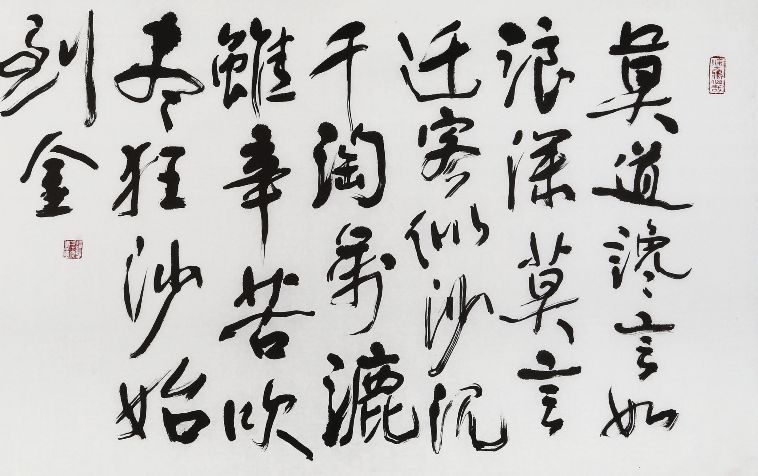 莫道谗言如
浪深莫言
迁客似沙沉
千淘萬漉
雖辛苦吹
尽狂沙始
到金